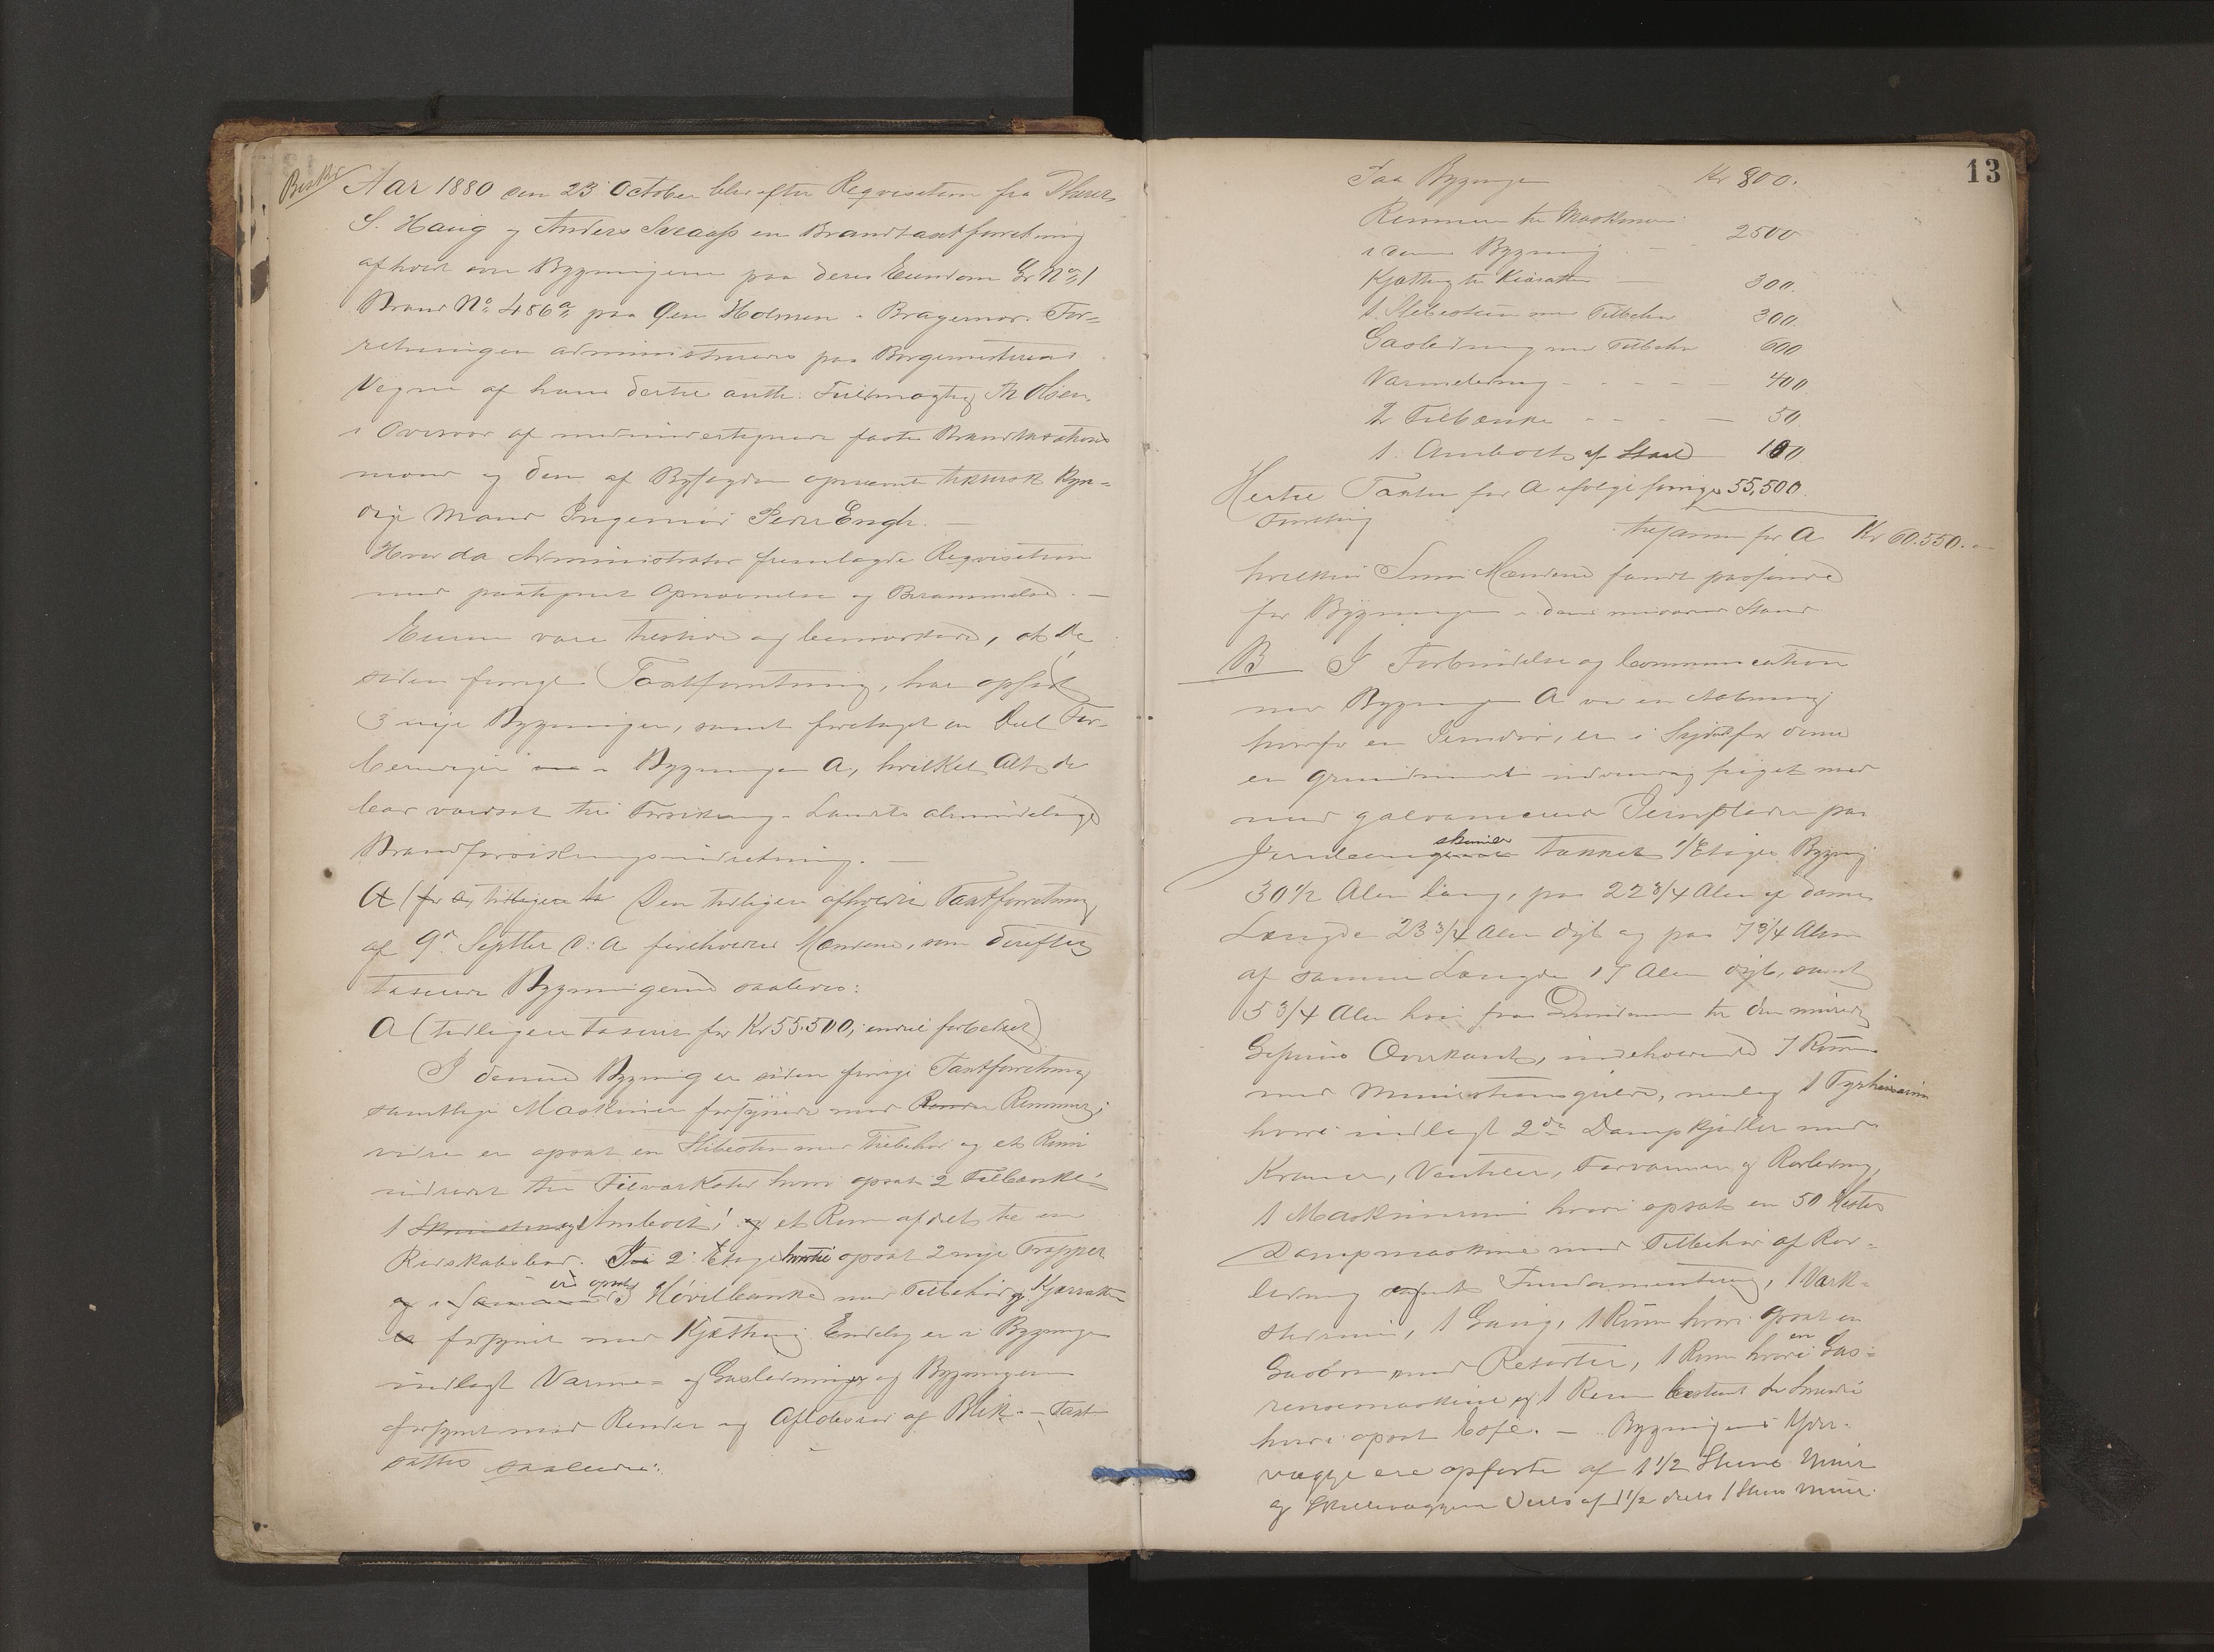 Beskr
Aar 1880 den 23 October blev efter Reqvisition fra D'Herrer
S. Haug og Anders Sveaass en Brandtaxtforretning
afholdt over Bygningerne paa deres Eiendom Gr No 1
Brand No 486a paa Øen Holmen i Bragernæs. For=
retningen administreredes paa Borgermesterens
Vegne af hans dertil auth. Fuldmægtig Th Olsen
i Overvær af medundertegnede faste Brandtaxations
mænd og den af Byfogden opnævnte teknisk Kyn=
dige Mand Ingeniør Peder Engh. —
Hvor da Administrator fremlagde Reqvisition
med paategnet Opnævnelse og Berammelse. —
Eierne vare tilstede og bemærkede, at de
siden forrige Taxtforretning, har opført
3 nye Bygninger, samt foretaget en Deel For=
bedringer i Bygningen A, hvilket Alt de
bar værdsat til Forsikring i Landets almindelige
Brandforsikringsindretning. —
A (for tidligere Den tidligere afholdte Taxtforretning
af 9de Septbr d: A foreholdtes Mændene, som derefter
taxerede Bygningerne saaledes:
A (tidligere taxeret for Kr 55.500, endel forbedret)
I denne Bygning er siden forrige Taxtforretning
samtlige Maskiner forsynede med Remmer;
videre er opsat en Slibesten med Tilbehør og et Rum
indredet til Filværksted hvori opsat 2 Filbænke
1 Ambolt; og et Rum afdelt til en
Redskabsbod. I 2: Etage hertil opsat 2 nye Trapper
og i er opsat 3 Høvelbænke med Tilbehør og Kjærrater
er forsynet med Kjætting. Endelig er i Bygningen
indlagt Varme= og Gasledninger og Bygningen
forsynet med Render og Afløbsrør af Blik. — Taxt
sattes saaledes:
13
Paa Bygningen Kr 800.
Remmer til Maskiner
i denne Bygning 2500
Kjætting til Kjærater — 300.
1 Slibesten med Tilbehør 300.
Gasledning med Tilbehør 600
Varmeledning - - - - 400
2 Filbænke - - - 50
1 Ambolt af Staal 100
Hertil Taxten for A ifølge forrige 55,500.
Forretning
tilsammen for A Kr 60.550. -
hvilken Sum Mændene fandt passende
for Bygningen i dens nuværende Stand
B I Forbindelse og Communication
med Bygningen A ved en Aabning
hvorfor en Jerndør, er i Syd for denne
en grundmuret indvendig pudset med
med galvaniserede Jernplader paa
Jern skinner tækket 1 Etages Bygning
30 1/2 Alen lang, paa 22 3/4 Alen af denne
Længde 23 3/4 Alen dyb og paa 7 3/4 Alen
af samme Længde 17 Alen dyb, samt
5 3/4 Alen høi fra Grunden til den murede
Gesims Overkant, indeholdende 7 Rum
med Murstensgulv, nemlig 1 Fyrhuus
hvori indlagt 2de Dampkjedler med
Kraner, Ventiler, Forvarmer og Rørledning,
1 Maskinrum hvori opsat en 50 Hestes
Dampmaskine med Tilbehør af Rør=
ledning og Fundamentering, 1 Værk=
stedrum, 1 Gang, 1 Rum hvori opsat en
Gasovn med Retorter, 1 Rum hvori en Gas=
rensemaskine og 1 Rum bestemt til Smedie
hvori opsat Esse. — Bygningens Yder=
vægge ere opførte af 1 1/2 Stens Muur
og Skillevæggene deels af 1 1/2 deels 1 Stens Muur.